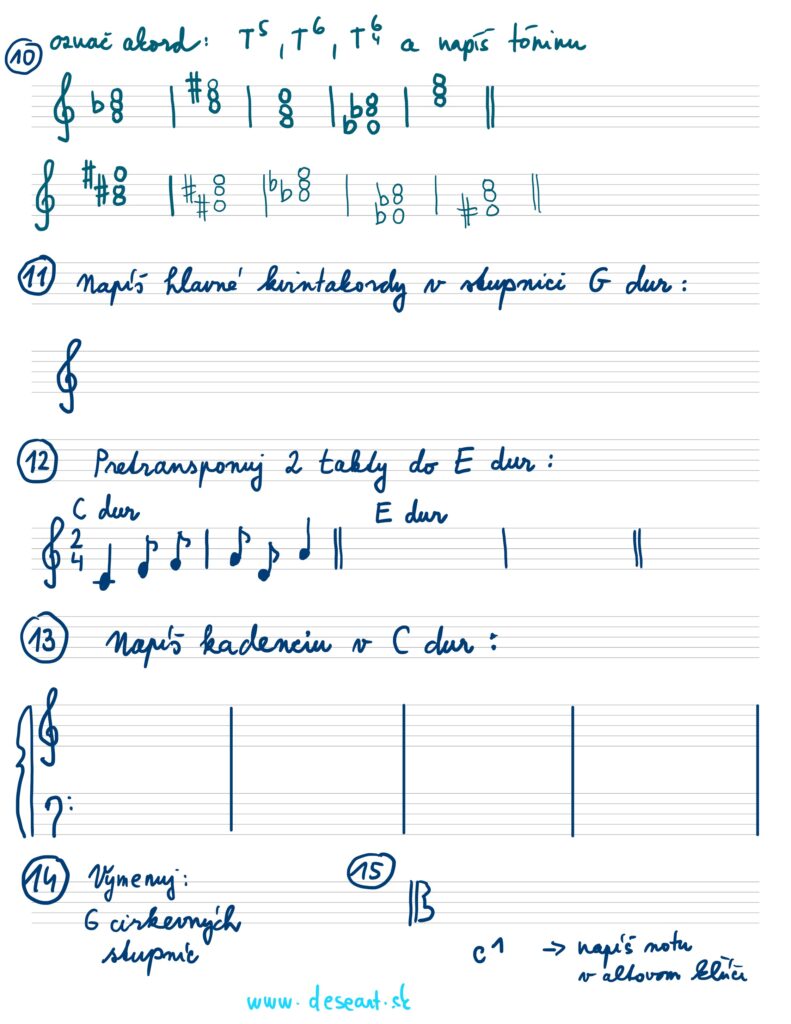 10 označ akord: T5, T6, T64 a napíš tóninu
11 Napíš hlavné kvintakordy v stupnici G dur:
12 Pretransponuj 2 takty do E dur:
C dur E dur
2
4
13 Napíš kadenciu v C dur:
14 Vymenuj:
6 cirkevných
stupníc
15
c1 → napíš notu
v altovom kľúči
www.deseart.sk